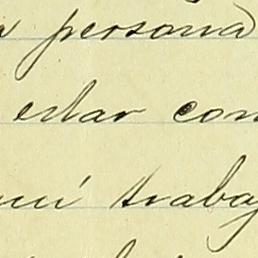 persona
estar con
mi traba